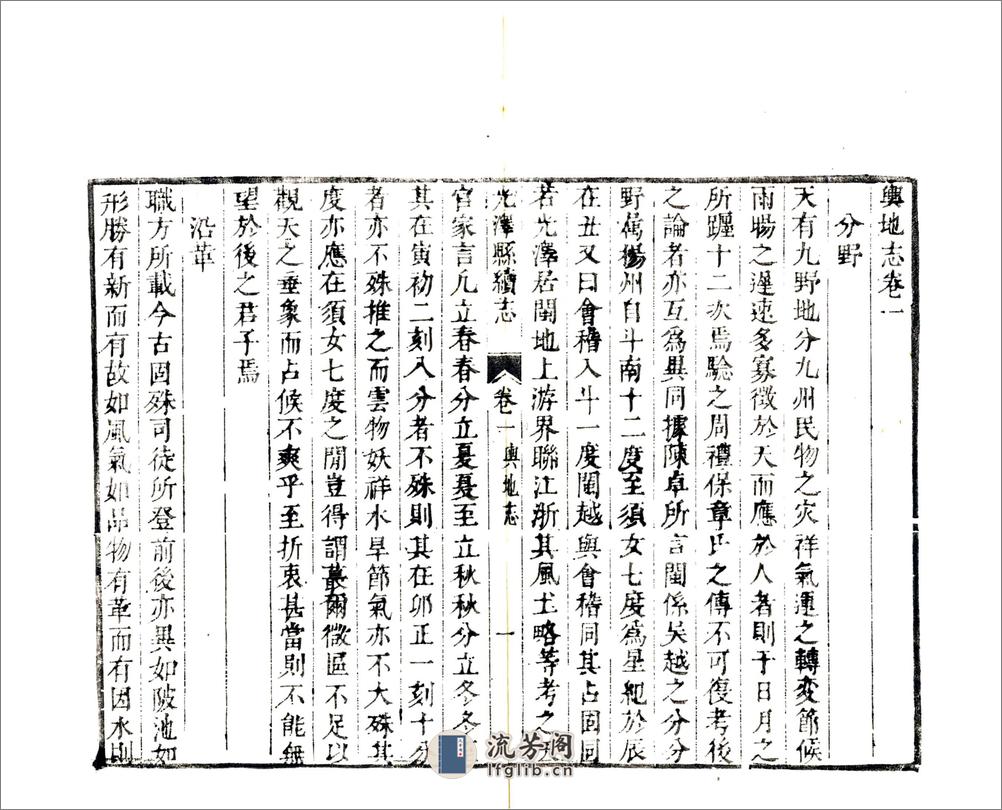 輿地志卷一
分野
天有九野地分九州民物之灾祥氣運之轉变節候
雨暘之遲速多寡徵於天而應於人者則于日月之
所躔十二次焉驗之周禮保章氏之傳不可復考後
之論者亦互爲異同據陳卓所言閩係吳越之分分
野屬揚州自斗南十二度至須女七度爲星紀於辰
在丑又曰會稽入斗一度閩越與會稽同其占固同
若光澤居閩地上游界聯江浙其風土略等考之
光澤縣續志
卷一
輿地志
一
官家言凡立春春分立夏夏至立秋秋分立冬冬
其在寅初二刻八分者不殊則其在卯正一刻十分
者亦不殊推之而雲物妖祥水旱節氣亦不大殊其
度亦應在須女七度之閒豈得謂蕞爾微區不足以
觀天之垂象而占候不爽乎至折衷甚當則不能無
望於後之君子焉
沿革
職方所載今古固殊司徒所登前後亦異如陂池如
形勝有新而有故如風氣如品物有革而有因水則
流芳阁
lfglib.cn